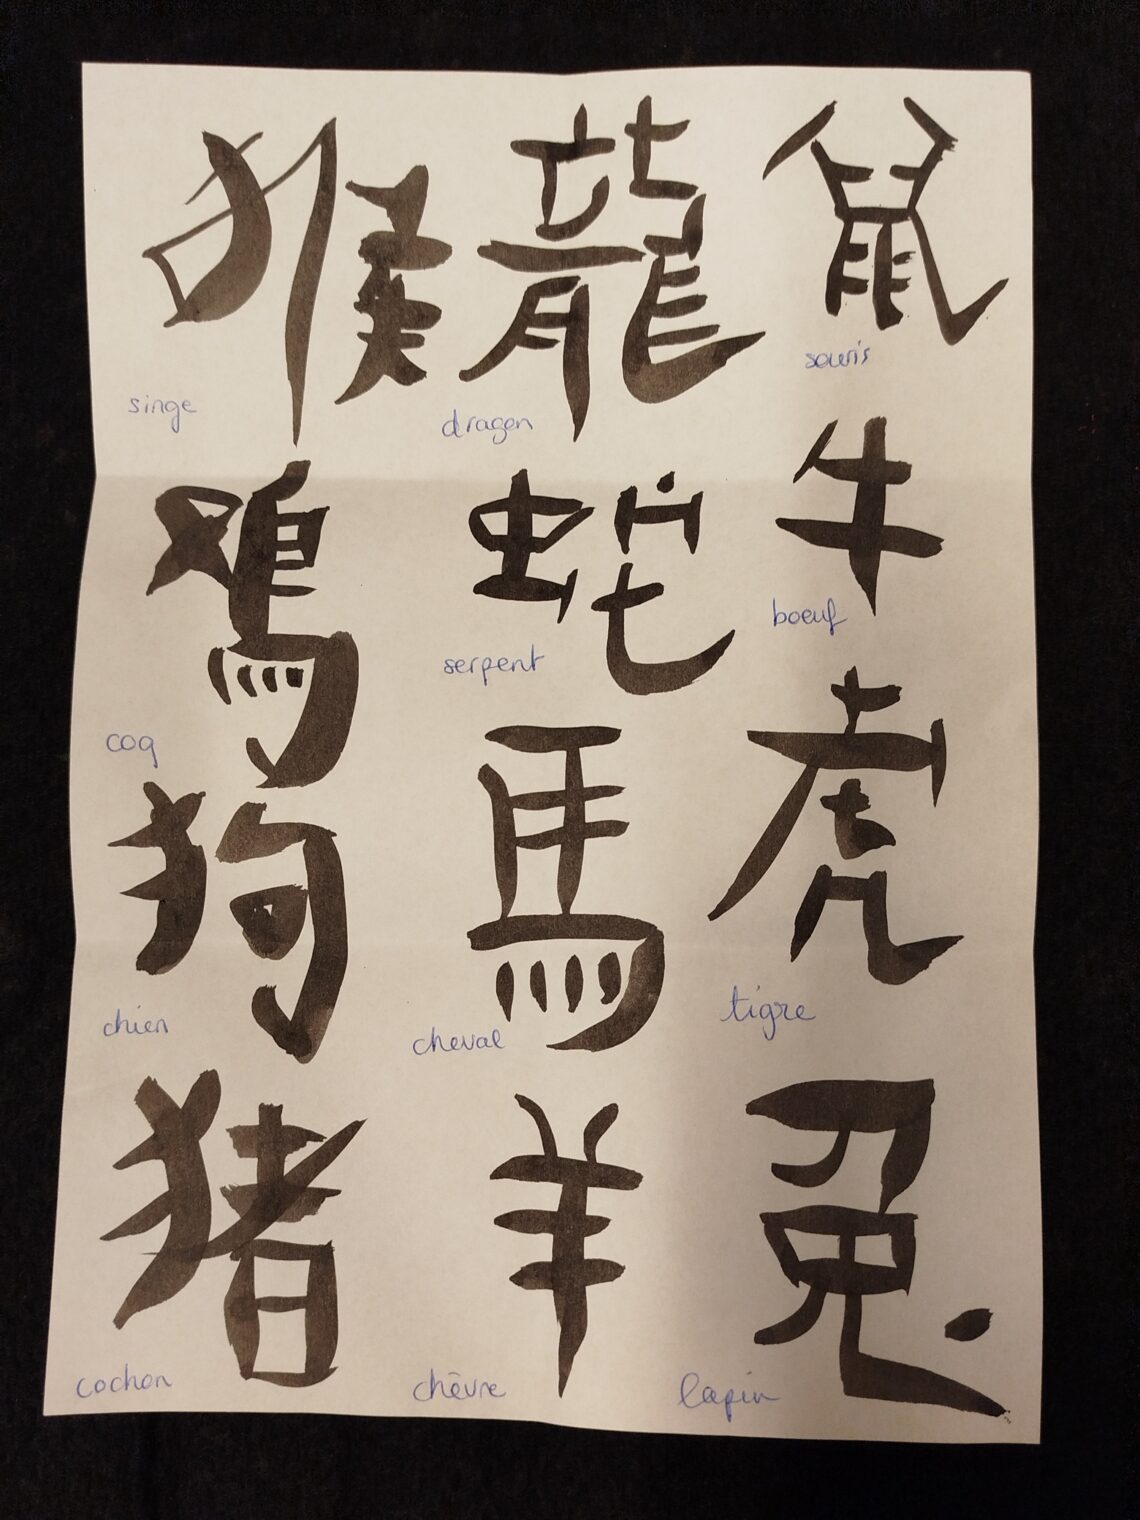 鼠
souris
牛
boeuf
虎
tigre
兔
lapin
龍
dragon
蛇
serpent
馬
cheval
羊
chèvre
猴
singe
鳮
coq
狗
chien
猪
cochon